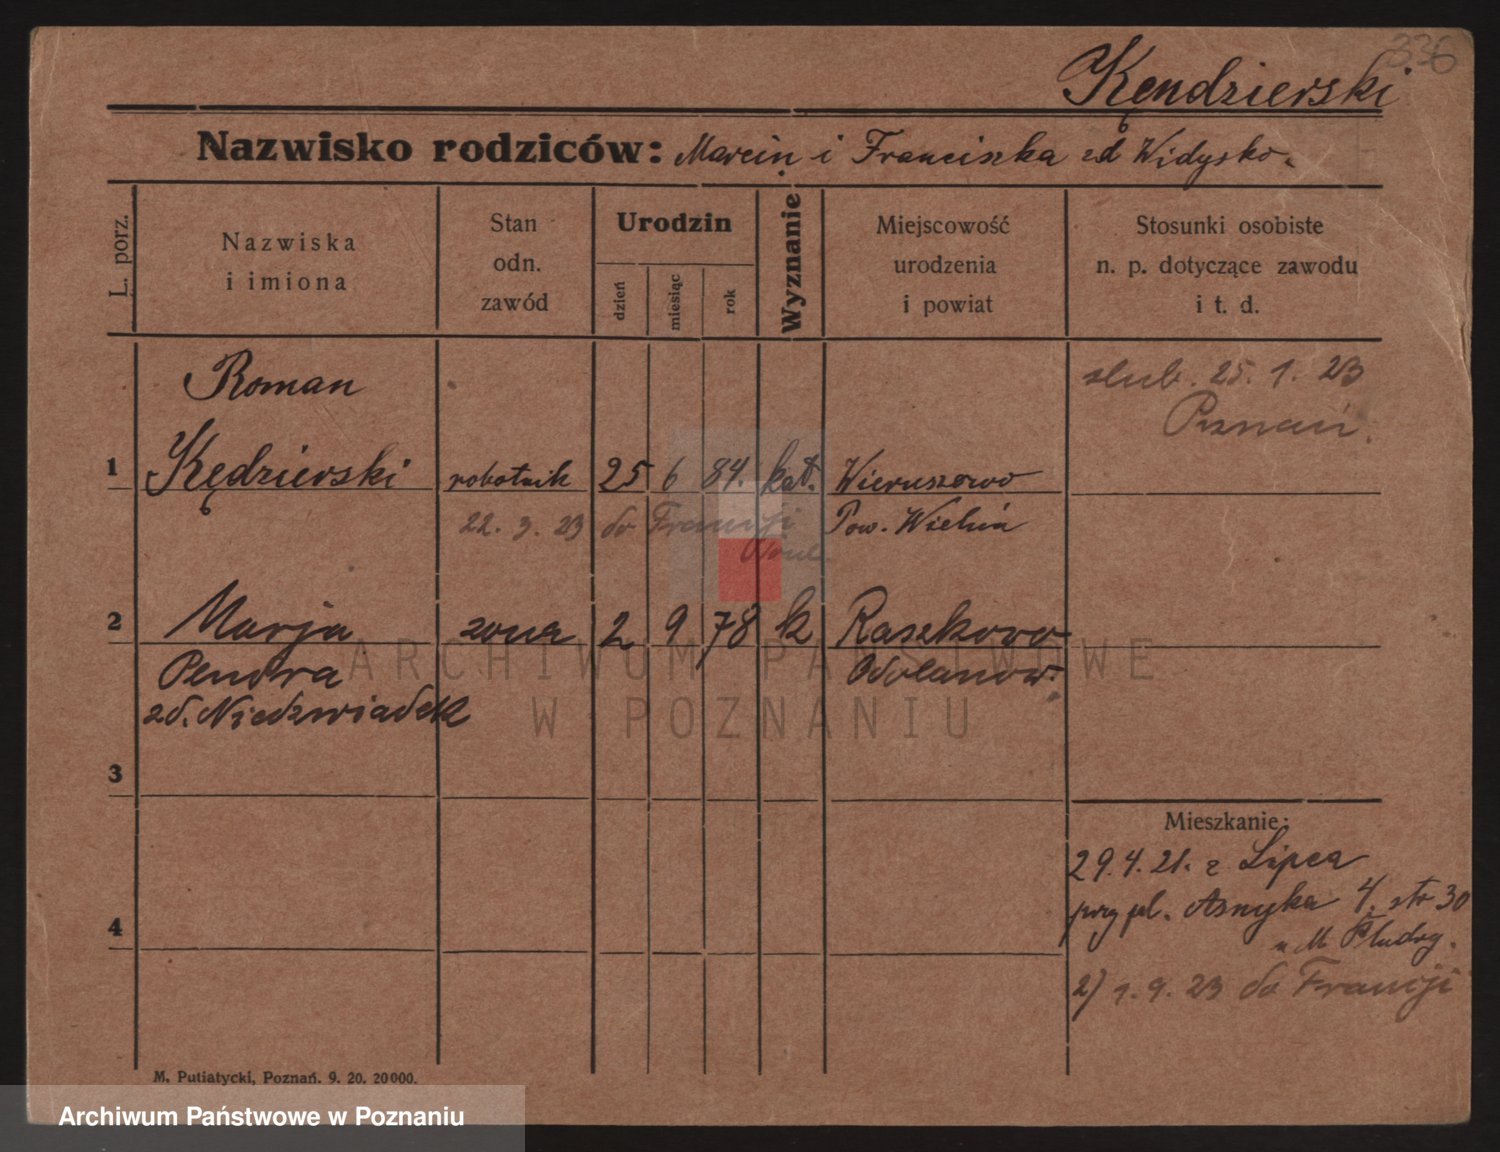 336
Kęndzierski
Nazwisko rodziców: Marcin i Franciszka zd Widysko.
L. porz.
Nazwiska
i imiona
Stan
odn.
zawód
Urodzin
dzień
miesiąc
rok
Wyznanie
Miejscowość
urodzenia
i powiat
Stosunki osobiste
n. p. dotyczące zawodu
i t. d.
Roman
ślub. 25. 1. 23
Poznań.
1 Kędzierski robotnik 25 6 84. kat. Wieruszowo
22. 3. 23 do Francji Pow. Wieluń
2 Marja żona 2 9 78 k Raszkowo
Pendra Odolanów.
zd. Niedzwiadek
3
Mieszkanie:
29.4.21. z Lipca
przy pl. Asnyka 4. str 30
u M.
4
2) 1. 9. 23 do Francji
M. Putiatycki, Poznań. 9. 20. 20000.
ARCHIWUM PAŃSTWOWE
W POZNANIU
Archiwum Państwowe w Poznaniu